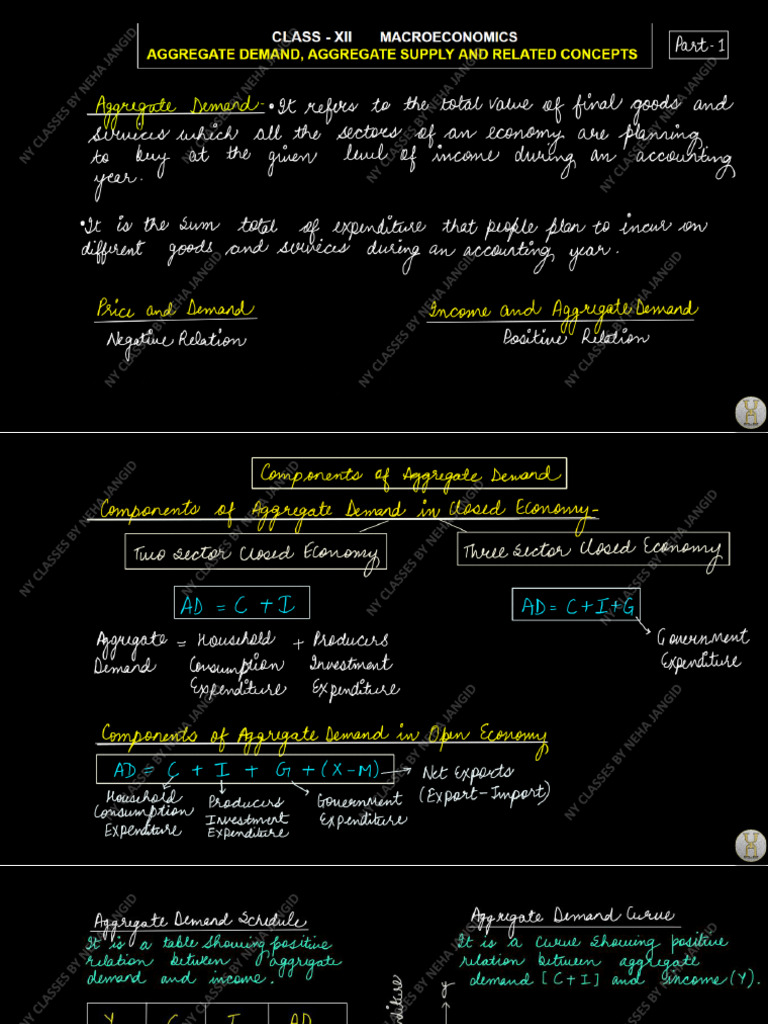 CLASS - XII MACROECONOMICS
AGGREGATE DEMAND, AGGREGATE SUPPLY AND RELATED CONCEPTS
Part-1
Aggregate Demand- •It refers to the total value of final goods and
services which all the sectors of an economy are planning
to buy at the given level of income during an accounting
year.
•It is the sum total of expenditure that people plan to incur on
different goods and services during an accounting year.
Price and Demand
Negative Relation
Income and Aggregate Demand
Positive Relation
Components of Aggregate Demand
Components of Aggregate Demand in Closed Economy-
Two Sector Closed Economy
Three Sector Closed Economy
AD = C + I
AD = C+I+G
Aggregate = Household + Producers
Demand Consumption Investment
Expenditure Expenditure
Government
Expenditure
Components of Aggregate Demand in Open Economy
AD = C + I + G + (X-M)
Net Exports
(Export-Import)
Household
Consumption
Expenditure
Producers
Investment
Expenditure
Government
Expenditure
Aggregate Demand Schedule
It is a table showing positive
relation between aggregate
demand and income.
Y C I AD
Aggregate Demand Curve
It is a curve showing positive
relation between aggregate
demand [C+I] and income (Y).
y
NY CLASSES BY NEHA JANGID